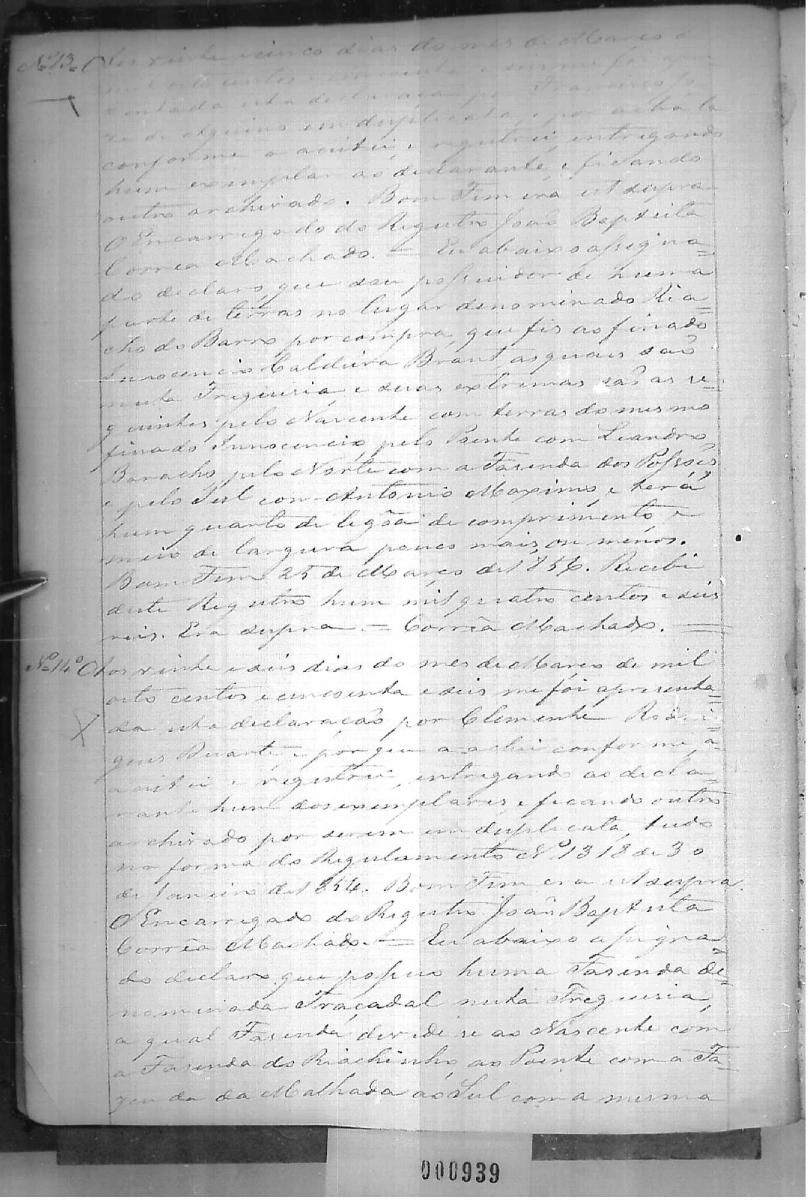 Nº 13º Aos vinte e cinco dias do mes de Março de
mil oito centos e cincoenta e seis me foi apre
zentada esta declaração por Francisco Jo
ze de em duplicata, e por acha la
conforme a aceitei, e registrei, entregando
hum exemplar ao declarante, e ficando
outro archivado. Bom Fim era ut supra
O Encarregado do Registro João Baptista
Corrêa Machado. = Eu abaixo assigna=
do declaro que sou possuidor de huma
parte de terras no lugar denominado Ria=
cho do Barro por compra, que fis ao finado
Innocencio Caldeira Brant, as quais são
nesta Freguesia e suas extremas são as se=
guintes pelo Nascente com terras do mesmo
finado Innocencio, pelo Poente com Leandro
Baracho, pelo Norte com a Fazenda dos Possoẽs
e pelo Sul com Antonio Maximo, e terá
hum quarto de legôa de comprimento e
meio de largura pouco mais, ou menos.
Bom Fim 25 de Março de 1856. Recebi
deste Registro hum mil quatro centos e seis
reis. Era supra = Corrêa Machado. =
Nº 14º Aos vinte e seis dias do mes de Março de mil
oito centos e cincoenta e seis me foi apresenta=
da esta declaração por Clemente Rodri
gues Duarte e porque a achei conforme, a
aceitei e registrei, entregando ao decla=
rante hum dos exemplares, e ficando outro
archivado por serem em duplicata, tudo
na forma do Regulamento Nº 1318 de 30
de Janeiro de 1854. Bom Fim era ut supra.
O Encarregado do Registro João Baptista
Corrêa Machado. = Eu abaixo assigna
do declaro que possuo huma Fazenda de=
nominada Traçadal nesta Freguesia,
a qual Fazenda devide se ao Nascente com
a Fazenda do Riachinho, ao Poente com a Fa=
zenda da Malhada ao Sul com a mesma
000939